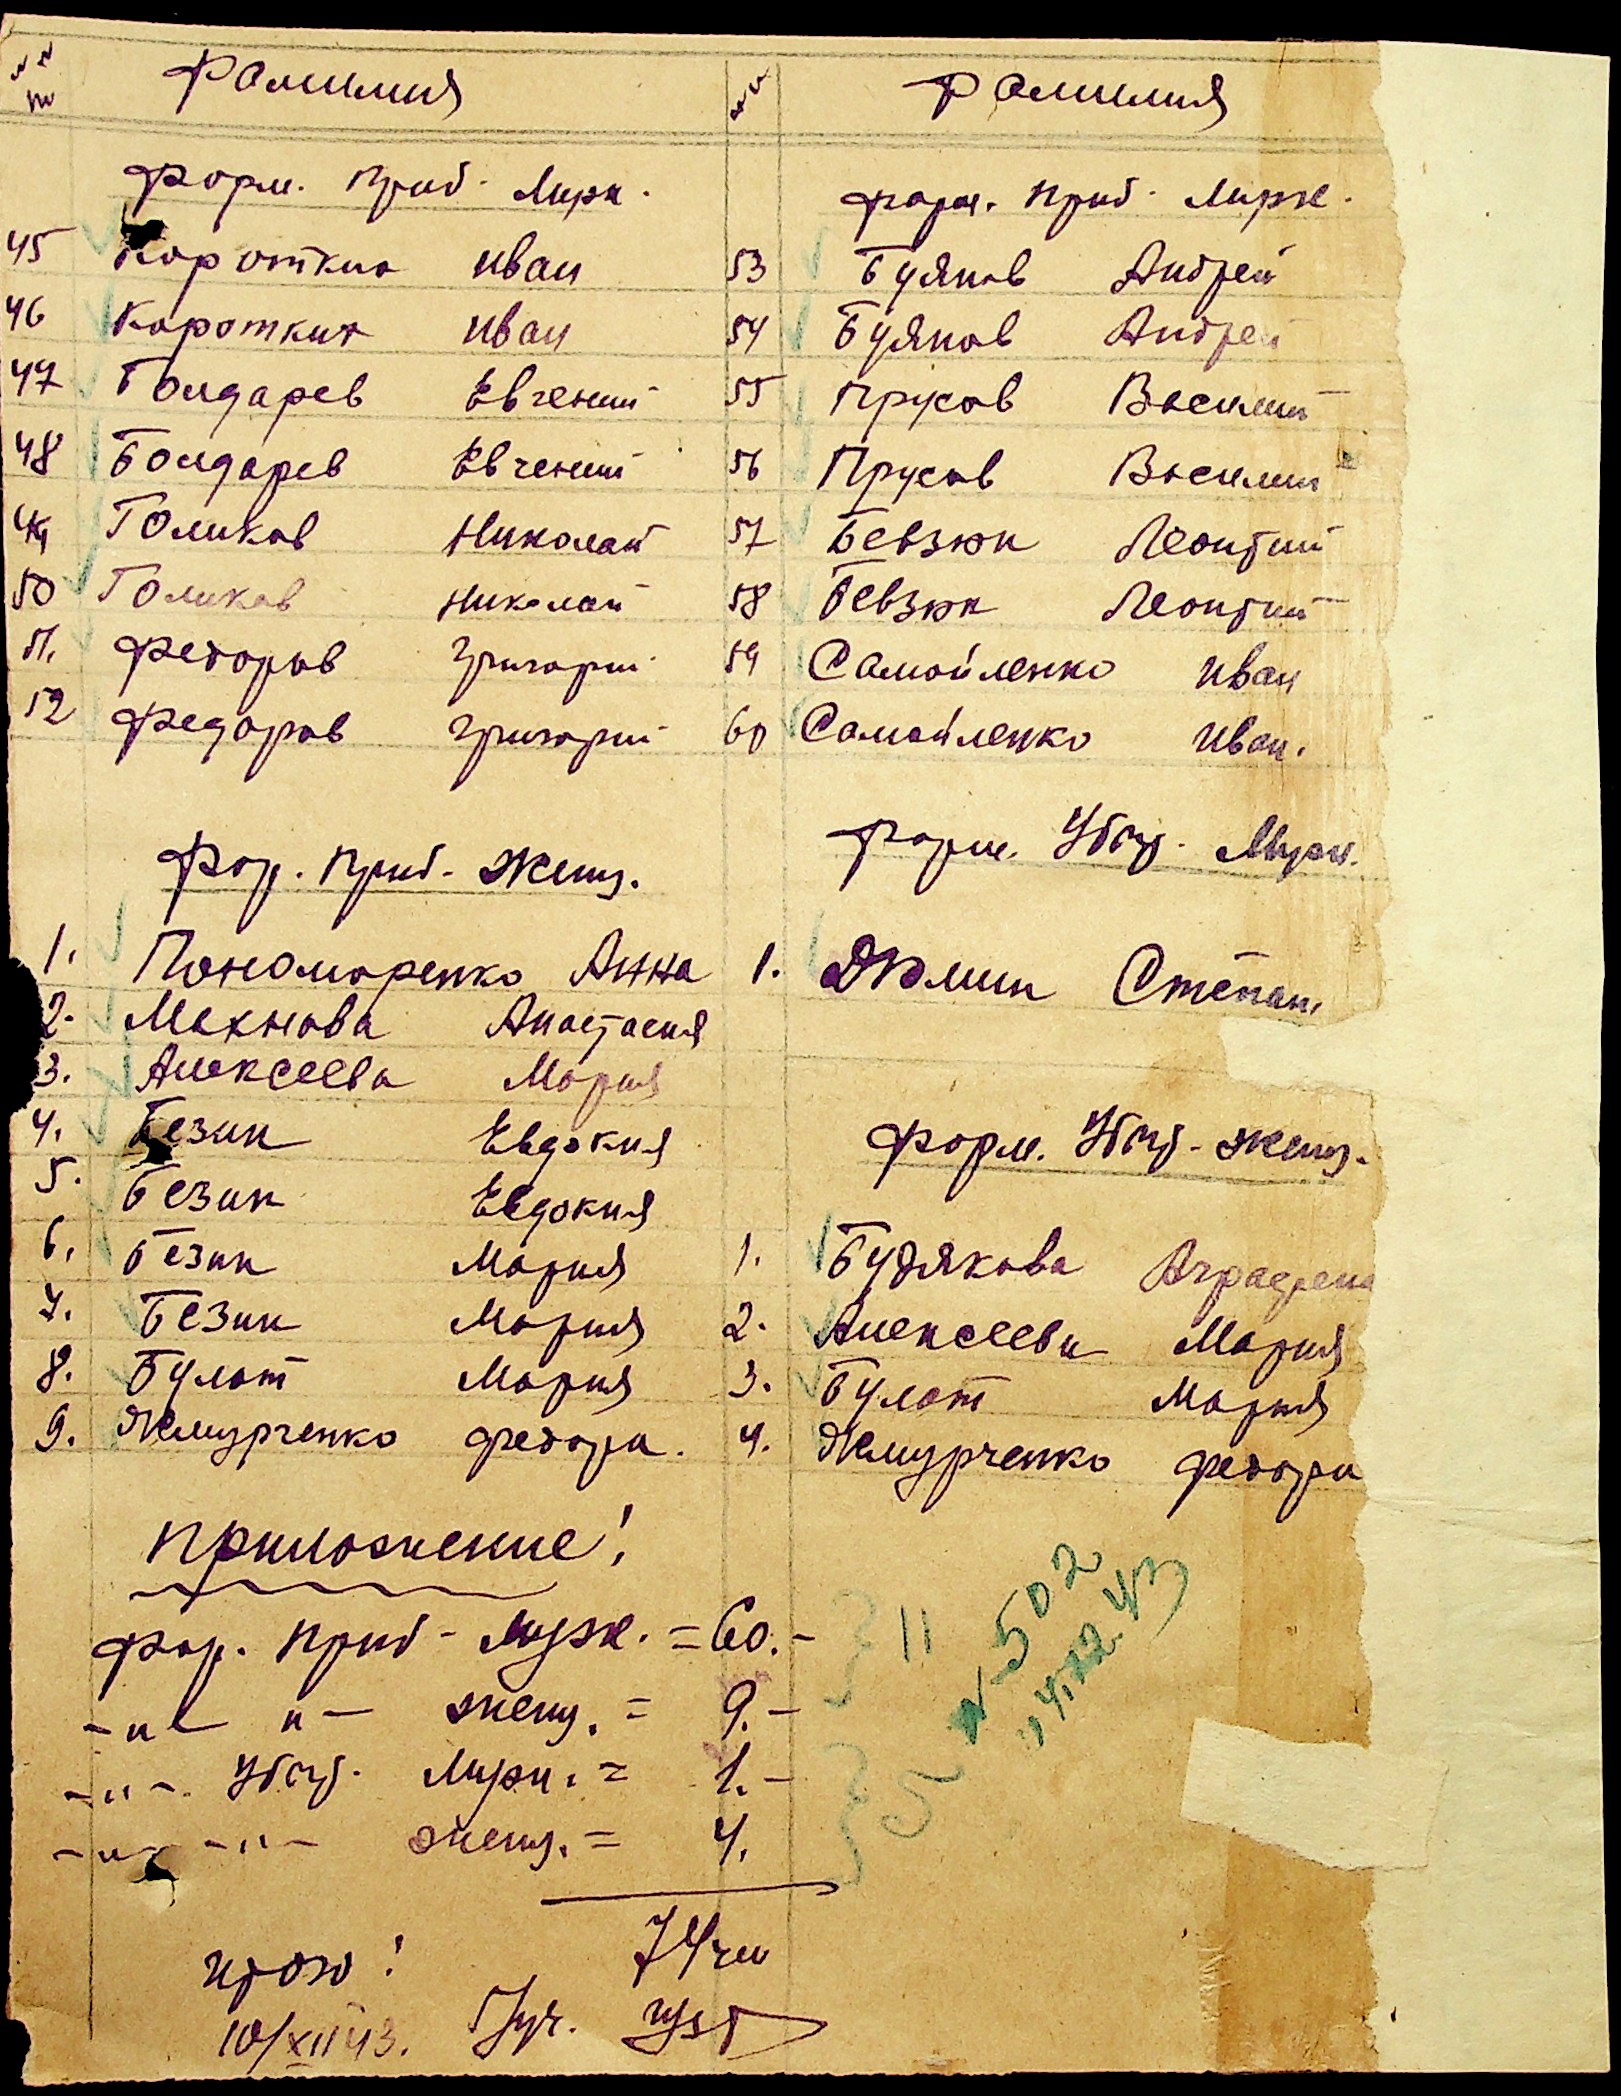 №№ пп Фамилия
форм. Приб. Мужк.
45 Коротких Иван
46 Коротких Иван
47 Бондарев Евгений
48 Бондарев Евгений
49 Голиков Николай
50 Голиков Николай
51. Федоров Григорий
52 Федоров Григорий
Фор. Приб. Женщ.
1. Пономаренко Анна
2. Махнова Анастасия
3. Алексеева Мария
4. Безик Евдокия
5. Безик Евдокия
6. Безик Мария
7. Безик Мария
8. Булат Мария
9. Жмурченко Федора.
№№ Фамилия
форм. Приб. Мужк.
53 Буянов Андрей
54 Буянов Андрей
55 Прусов Василий
56 Прусов Василий
57 Бевзюк Леонтий
58 Бевзюк Леонтий
59 Самойленко Иван
60 Самойленко Иван.
форм. Убыт. Мужк.
1. Дюмин Степан.
Форм. Убыт. женщ.
1. Будякова Аграфена
2. Алексеева Мария
3. Булат Мария
4. Жмурченко Федора
Приложение!
Фор. Приб - Мужк. = 60.-
-"- "- женщ. = 9.-
-"-. Убыт. Мужк. = 1.-
-"- -"- женщ. = 4.
74
Итого!
10/XII 43.
11
5
№ 502